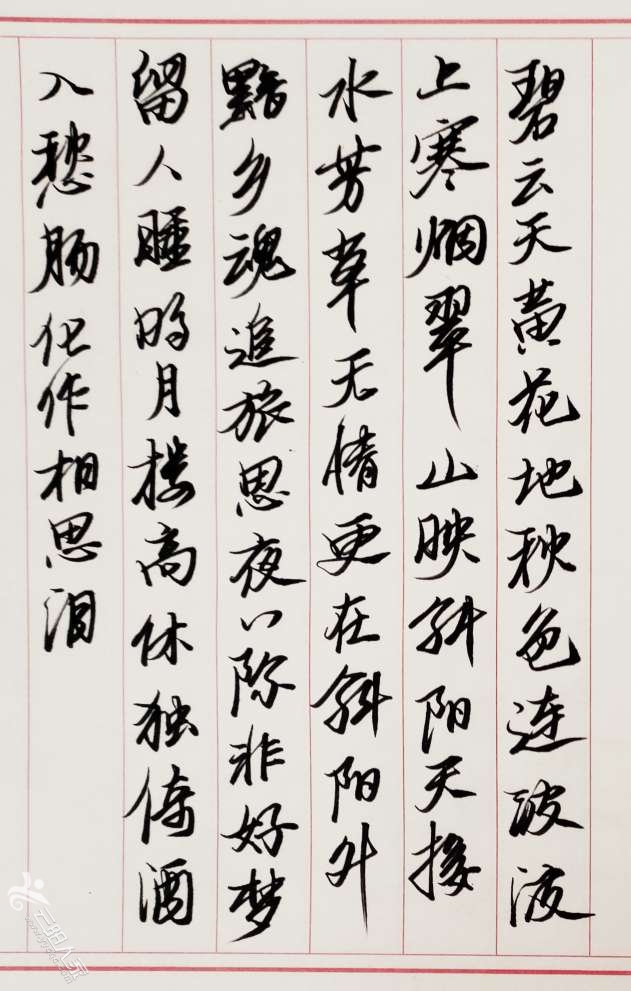 碧云天黄花地秋色连波波
上寒烟翠山映斜阳天接
水芳草无情更在斜阳外
黯乡魂追旅思夜〻除非好梦
留人睡明月楼高休独倚酒
入愁肠化作相思泪
云阳人家